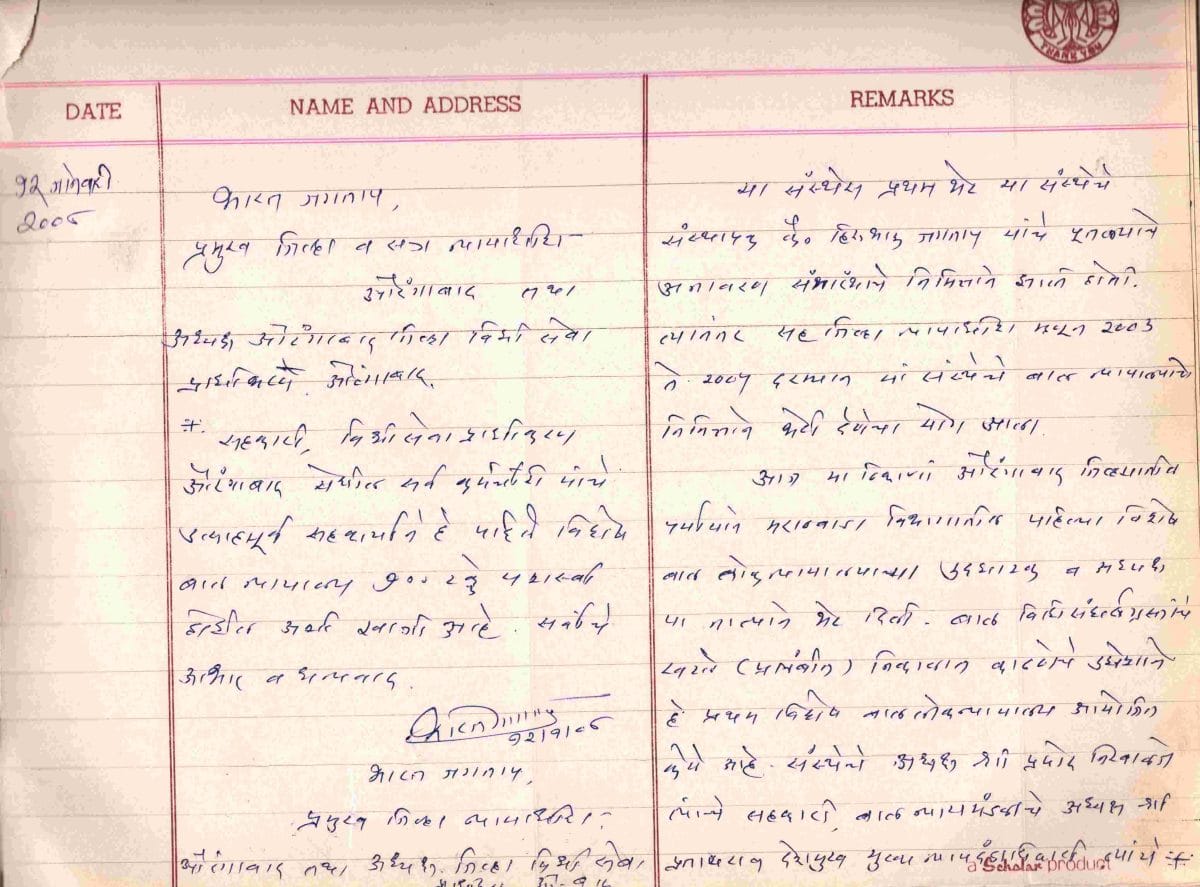 THANK YOU
DATE
NAME AND ADDRESS
REMARKS
१२ जानेवारी
२००८
भारत जगताप,
प्रमुख जिल्हा व सत्र न्यायाधीश
औरंगाबाद तथा
अध्यक्ष औरंगाबाद जिल्हा विधी सेवा
प्राधिकरण औरंगाबाद.
सहकारी, विधी सेवा प्राधिकरण
औरंगाबाद येथील सर्व कर्मचारी यांचे
उत्साहपूर्ण सहकार्याने हे पहिले विशेष
बाल न्यायालय १००% यशस्वी
होईल अशी खात्री आहे. सर्वांचे
आभार व धन्यवाद.
१२/१/०८
भारत जगताप,
प्रमुख जिल्हा न्यायाधीश
औरंगाबाद तथा अध्यक्ष जिल्हा विधी सेवा
या संस्थेस प्रथम भेट या संस्थेचे
संस्थापक कै० जगताप यांचे पुतळ्याचे
अनावरण समारंभाचे निमित्ताने झाली होती.
त्यानंतर सह जिल्हा न्यायाधीश म्हणून २००३
ते २००५ दरम्यान या संस्थेचे बाल न्यायालयाचे
निमित्ताने भेटी देणेचा योग आला.
आज या ठिकाणी औरंगाबाद जिल्ह्यातील
पर्यायाने मराठवाडा विभागातील पहिल्या विशेष
बाल लोकन्यायालयाच्या उद्घाटक व अध्यक्ष
या नात्याने भेट दिली. बाल विधिसंघर्षग्रस्तांचे
खटले (प्रलंबीत) निकालात काढणेचे उद्देशाने
हे प्रथम विशेष बाललोकन्यायालय आयोजित
केले आहे. संस्थेचे अध्यक्ष श्री
त्यांचे सहकारी, बाल न्यायमंडळाचे अध्यक्ष श्री
प्रतापराव देशमुख मुख्य न्यायदंडाधिकारी त्यांचे
a Scholar product